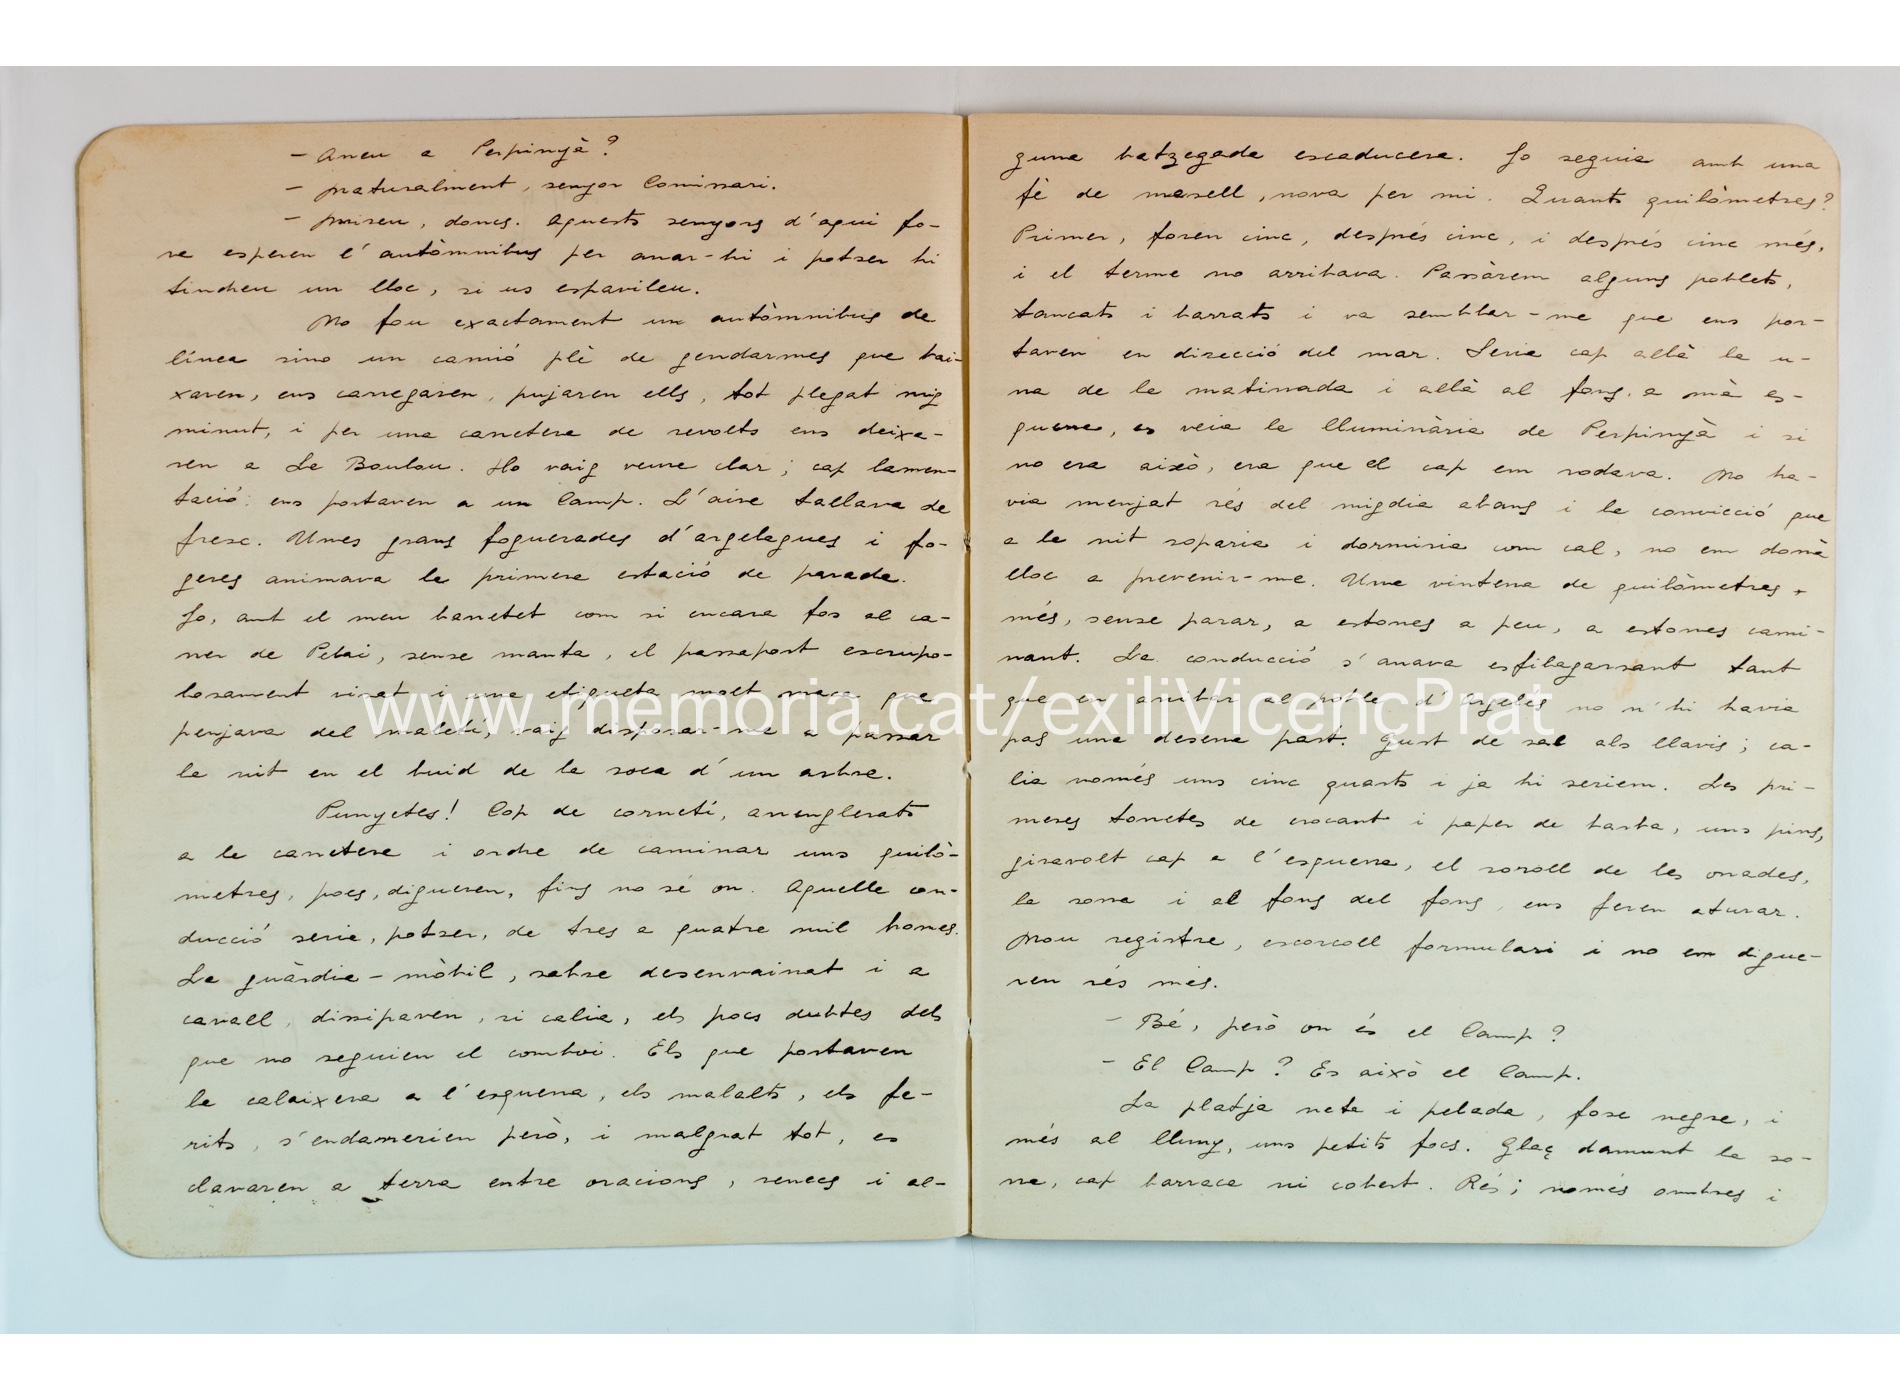 - Aneu a Perpinyà?
- Naturalment, senyor Comissari.
- Mireu, doncs. Aquests senyors d'aquí fo-
ra esperen l'autòmnibus per anar-hi i potser hi
tindreu un lloc, si us espavileu.
No fou exactament un autòmnibus de
línea sino un camió plè de gendarmes que bai-
xaren, ens carregaren, pujaren ells, tot plegat mig
minut, i per una carretera de revolts ens deixa-
ren a Le Boulou. Ho vaig veure clar; cap lamen-
tació: ens portaven a un Camp. L'aire tallava de
fresc. Unes grans foguerades d'argelagues i fo-
geres animava la primera estació de parada.
Jo, amb el meu barretet com si encara fos al ca-
rrer de Pelai, sense manta, el passaport escrupo-
losament visat i una etiqueta molt maca que
penjava del maletí, vaig disposar-me a passar
la nit en el buid de la soca d'un arbre.
Punyetes! Cop de cornetí, arrenglerats
a la carretera i ordre de caminar uns quilò-
metres, pocs, digueren, fins no sé on. Aquella con-
ducció seria, potser, de tres a quatre mil homes.
La guàrdia-mòbil, sabre desenvainat i a
cavall, dissipaven, si calia, els pocs dubtes dels
que no seguien el comboi. Els que portaven
la calaixera a l'esquena, els malalts, els fe-
rits, s'endarrerien però, i malgrat tot, es
clavaren a terra entre oracions, renecs i al-
guna batzegada escaducera. Jo seguia amb una
fè de mesell, nova per mi. Quants quilòmetres?
Primer, foren cinc, després cinc, i després cinc més,
i el terme no arribava. Passàrem alguns poblets,
tancats i barrats i va semblar-me que ens por-
taven en direcció del mar. Seria cap allà la u-
na de la matinada i allà al fons, a mà es-
querra, es veia la lluminària de Perpinyà i si
no era això, era que el cap em rodava. No ha-
via menjat rés del migdia abans i la convicció que
a la nit soparia i dormiria com cal, no em donà
lloc a prevenir-me. Una vintena de quilòmetres
més, sense parar, a estones a peu, a estones cami-
nant. La conducció s'anava esfilagarsant tant
que en arribar al poble d'Argelés no n'hi havia
pas una desena part. Gust de sal als llavis; ca-
lia només uns cinc quarts i ja hi seriem. Les pri-
meres tonetes de crocant i paper de barba, uns pins,
giravolt cap a l'esquerra, el soroll de les onades,
la sorra i al fons del fons, ens feren aturar.
Nou registre, escorcoll formulari i no em digue-
ren rés més.
- Bé, però on és el Camp?
- El Camp? Es això el Camp.
La platja neta i pelada, fosc negre, i
més al lluny, uns petits focs. Glaç damunt la so-
rra, cap barraca ni cobert. Rés; només ombres i
www.memoria.cat/exiliVicençPrat